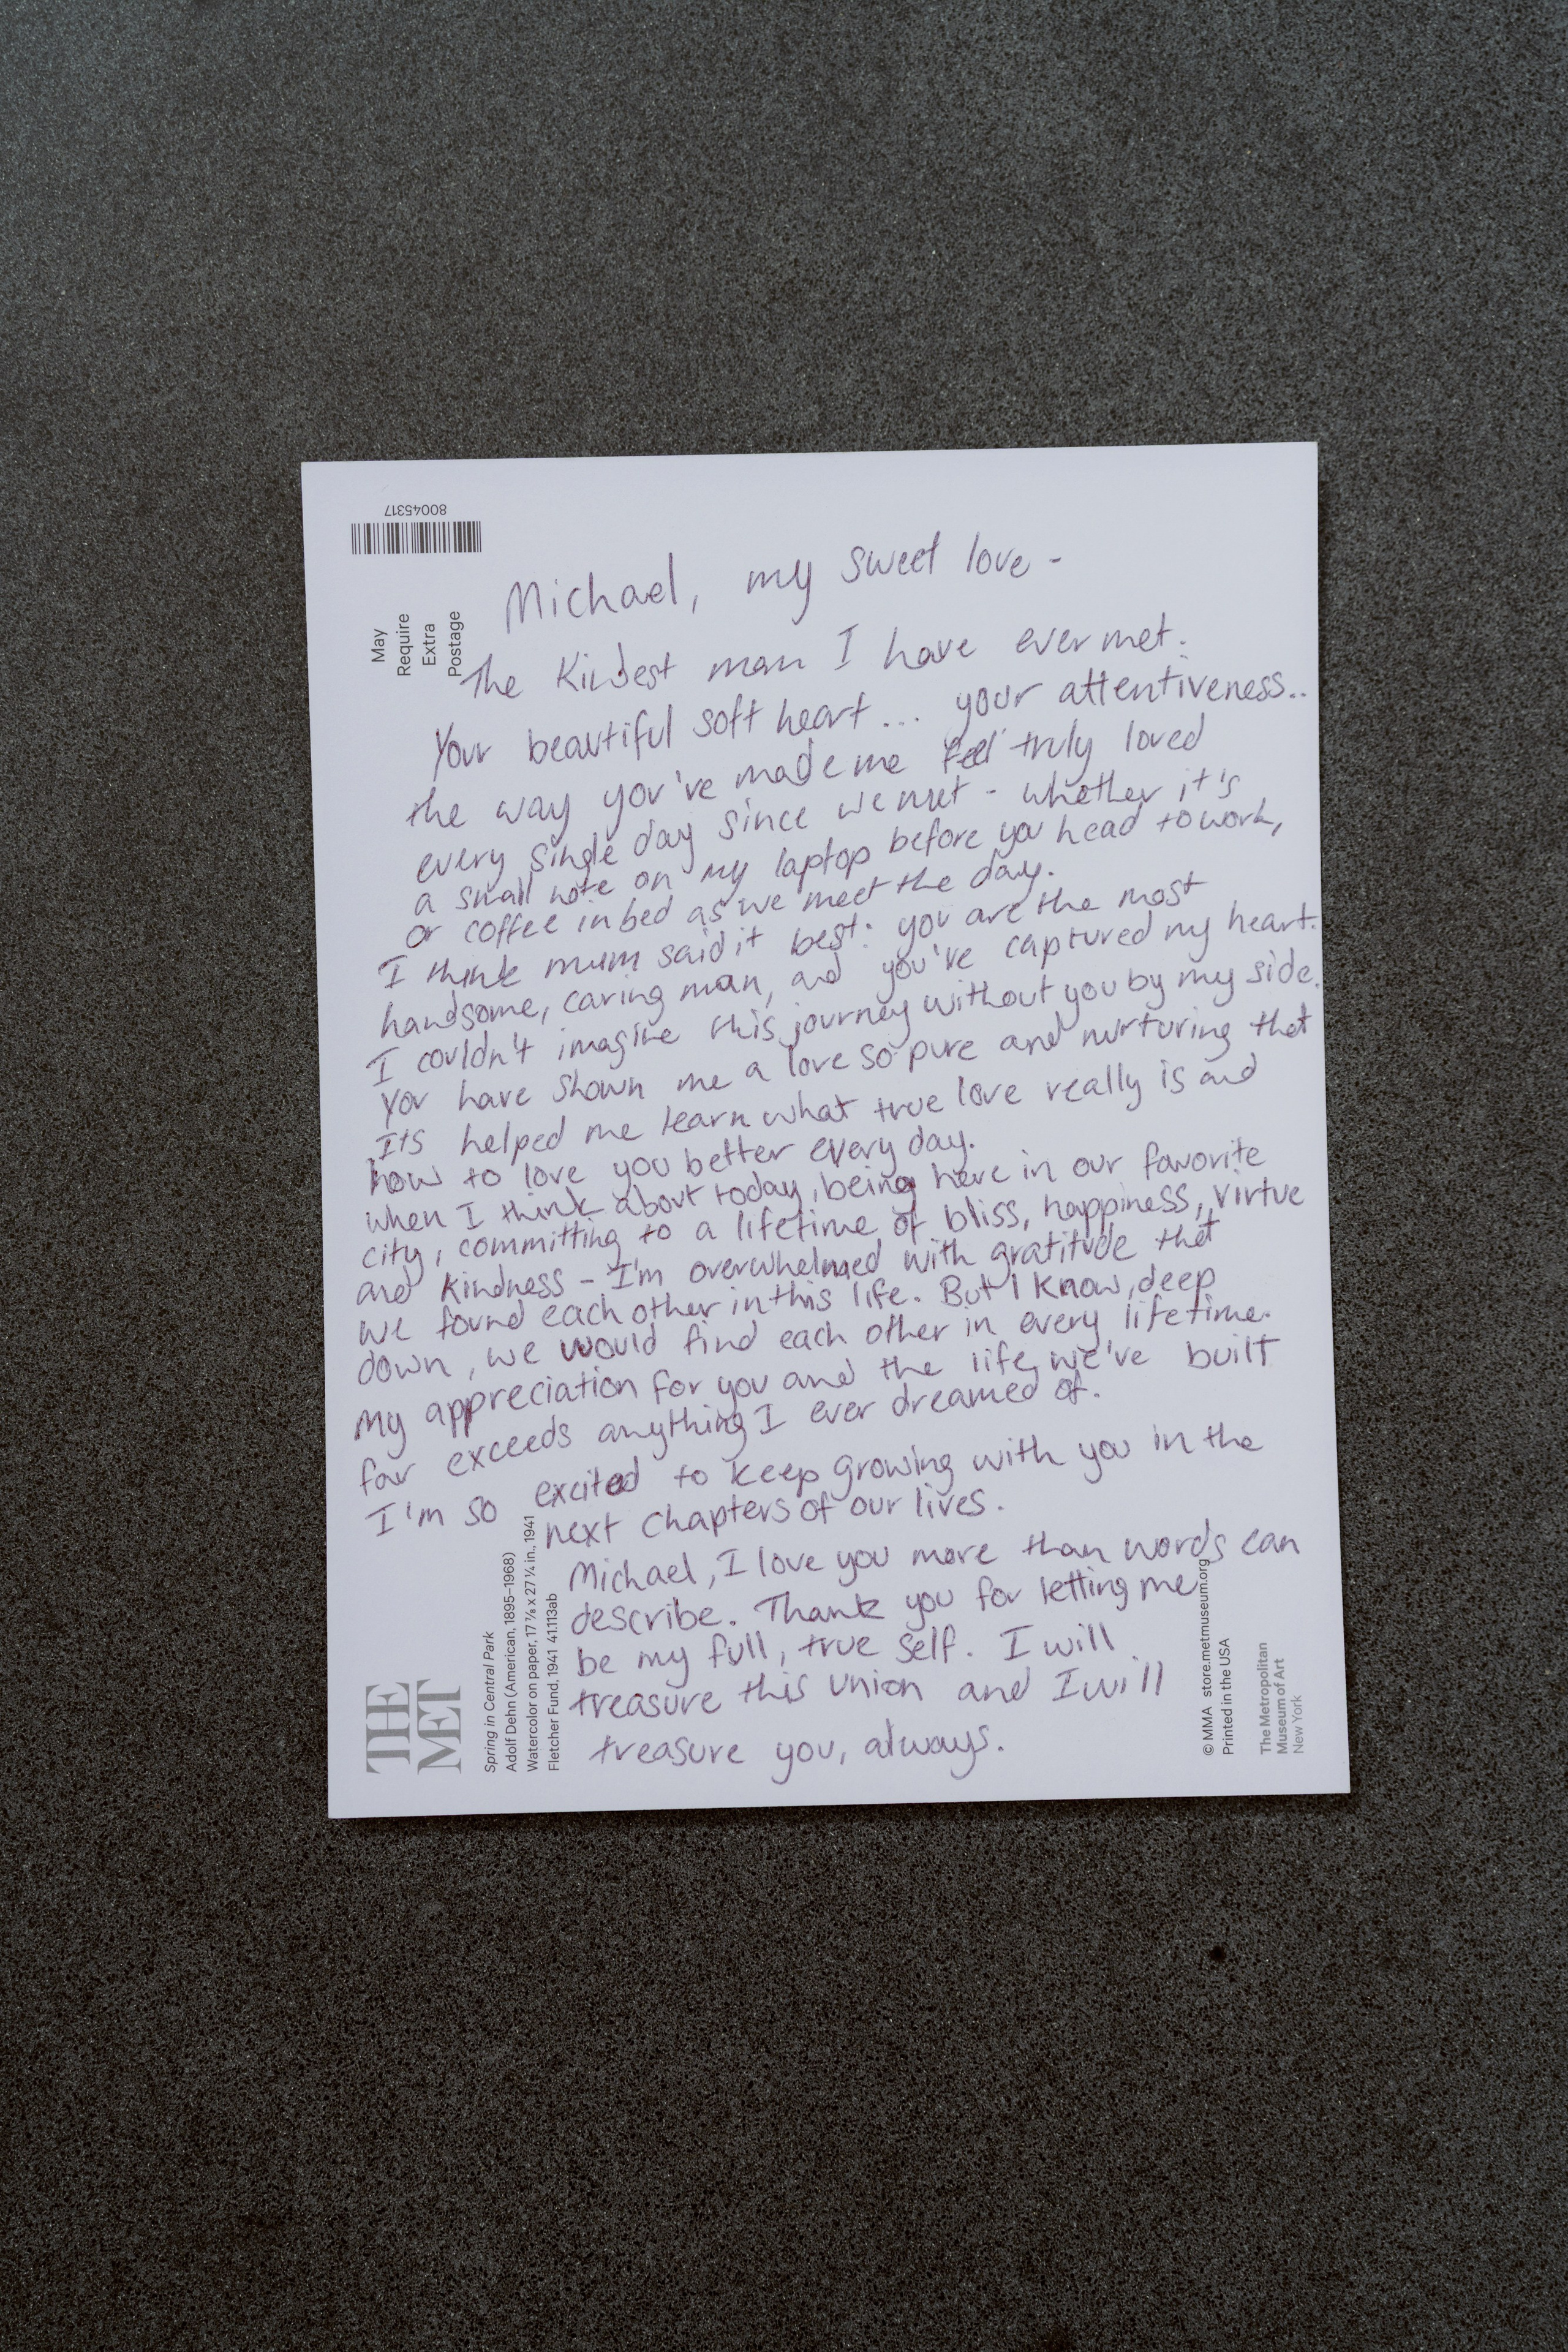 80045317
May
Require
Extra
Postage
Michael, my sweet love -
The Kindest man I have ever met.
Your beautiful soft heart... your attentiveness..
the way you've made me feel truly loved
every single day since we met - whether it's
a small note on my laptop before you head to work,
or coffee in bed as we meet the day.
I think mum said it best: you are the most
handsome, caring man, and you've captured my heart.
I couldn't imagine this journey without you by my side.
You have shown me a love so pure and nurturing that
Its helped me learn what true love really is and
how to love you better every day.
when I think about today, being here in our favorite
city, committing to a lifetime of bliss, happiness, virtue
and kindness - I'm overwhelmed with gratitude that
we found each other in this life. But I know, deep
down, we would find each other in every lifetime.
My appreciation for you and the life we've built
far exceeds anything I ever dreamed of.
I'm so excited to keep growing with you in the
next chapters of our lives.
Michael, I love you more than words can
describe. Thank you for letting me
be my full, true self. I will
treasure this union and I will
treasure you, always.
THE
MET
Spring in Central Park
Adolf Dehn (American, 1895–1968)
Watercolor on paper, 17 7/8 x 27 1/4 in., 1941
Fletcher Fund, 1941 41.113ab
© MMA store.metmuseum.org
Printed in the USA
The Metropolitan
Museum of Art
New York